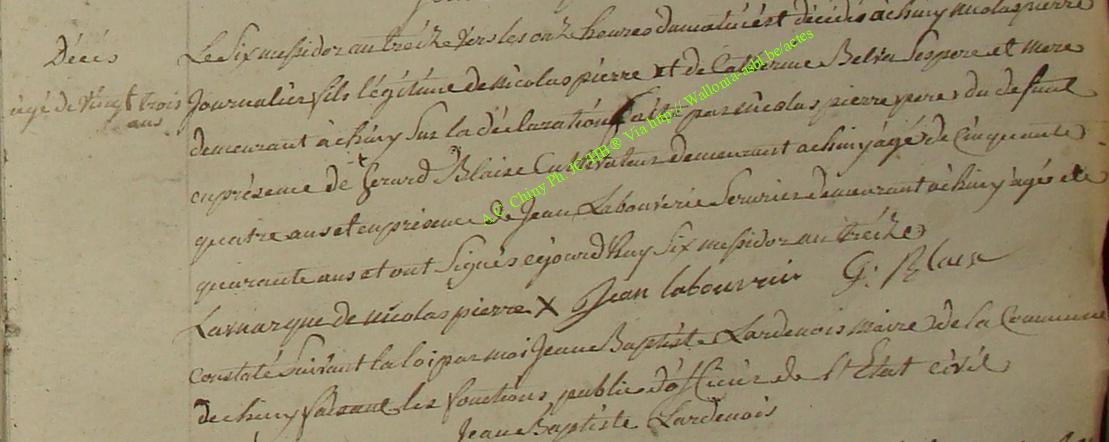 Décès
agé de vingt trois
ans
Le Six messidor an treize vers les onze heures du matin est décédé à chiny nicolas pierre
Journalier fils légitime de nicolas pierre et de Catherine Belva Ses pere et mere
demeurant à chiny Sur la déclaration faite par nicolas pierre pere du defunt
en présence de Gerard Blaise Cultivateur demeurant a chiny âgé de Cinquante
quatre ans et en présence de Jean Labouverie Serurier demeurant à chiny âgé de
quarante ans et ont Signés ejourd'huy Six messidor an treize
La marque de nicolas pierre X Jean labouverie G: Blaise
constaté Suivant la loi par moi Jean Baptiste Lardenois maire de la Commune
de chiny faisant les fonctions public d'officier de l'Etat civil
Jean Baptiste Lardenois
A.E. Chiny Ph. JCHB® Via http:// Wallonia-asbl.be/actes